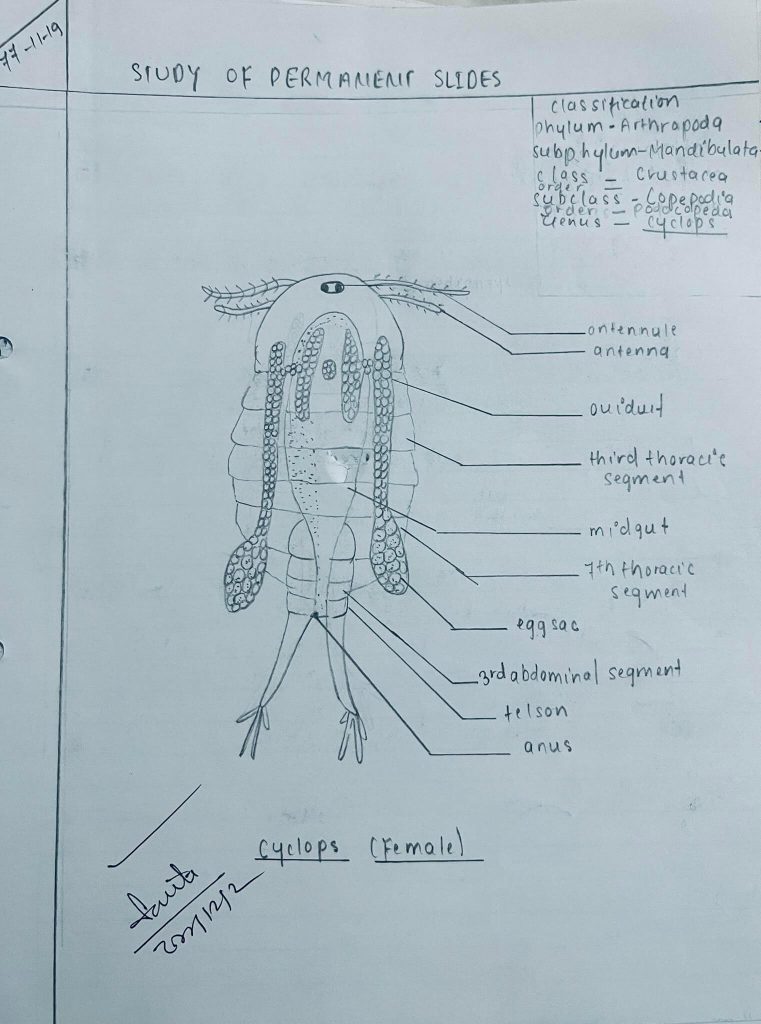 77-11-19
STUDY OF PERMANENT SLIDES
classification
phylum - Arthropoda
subphylum - Mandibulata
class = Crustacea
order
subclass - Copepodia
order = podocopeda
Genus = cyclops
antennule
antenna
oviduit
third thoracic
segment
midgut
7th thoracic
segment
eggsac
3rd abdominal segment
telson
anus
Cyclops (Female)